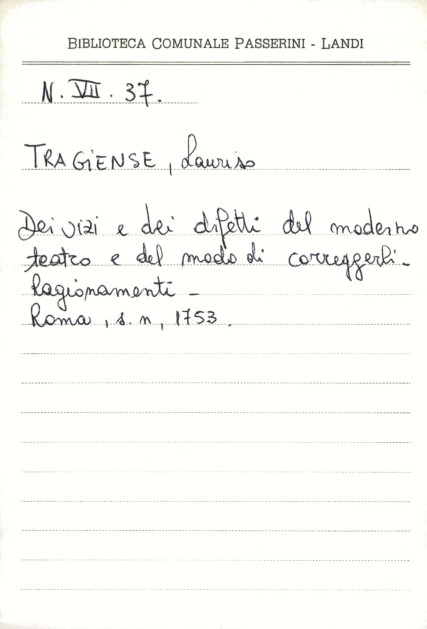 BIBLIOTECA COMUNALE PASSERINI - LANDI
N. VII. 37.
TRAGIENSE, Lauriso
Dei vizi e dei difetti del moderno
teatro e del modo di correggerli -
Ragionamenti -
Roma, s. n, 1753.